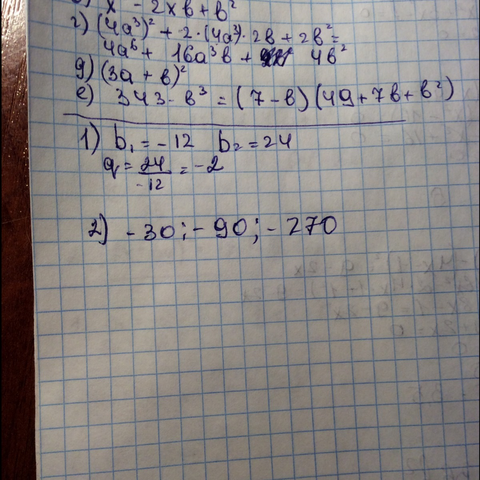 x - 2xb + b²
г) (4a³)² + 2·(4a³)·2b + 2b² =
4a⁶ + 16a³b + 4b²
g) (3a + b)²
e) 343 - b³ = (7 - b)(49 + 7b + b²)
1) b₁ = -12 b₂ = 24
q = 24/-12 = -2
2) -30; -90; -270